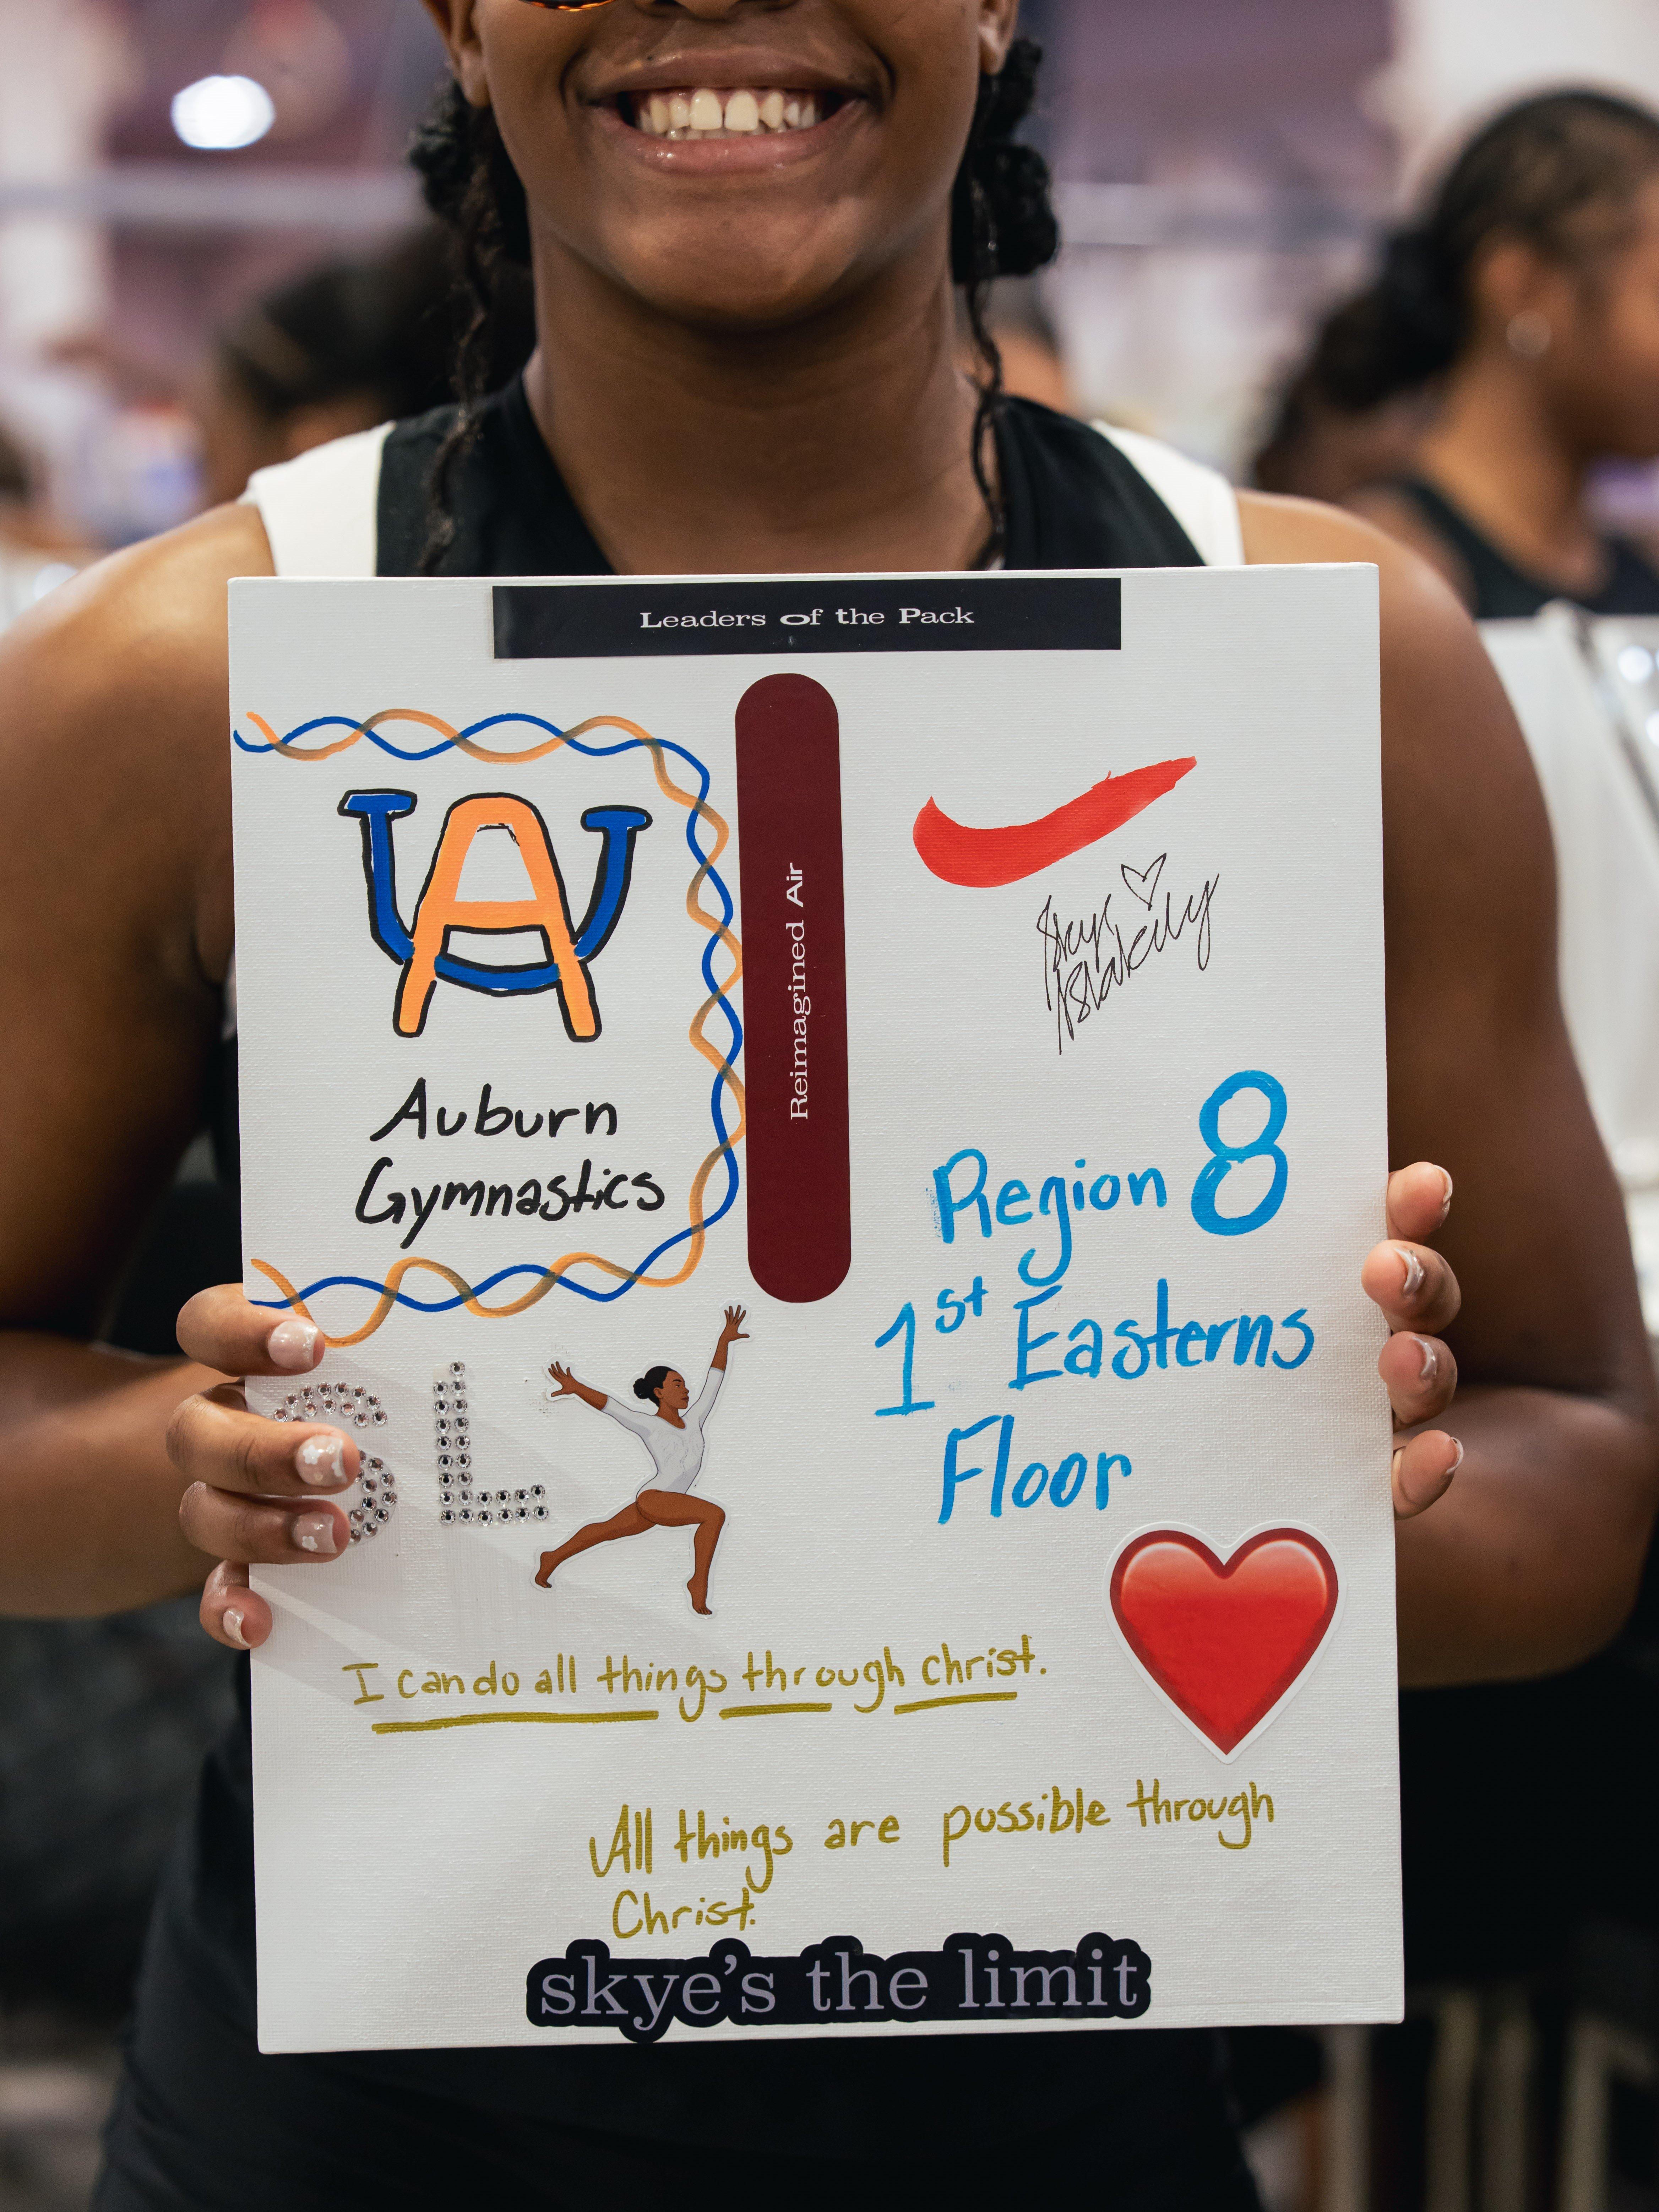 Leaders of the Pack
AU
Auburn
Gymnastics
Reimagined Air
Skye
Blakely
Region 8
1st Easterns
Floor
SL
I can do all things through christ.
All things are possible through
Christ.
skye's the limit